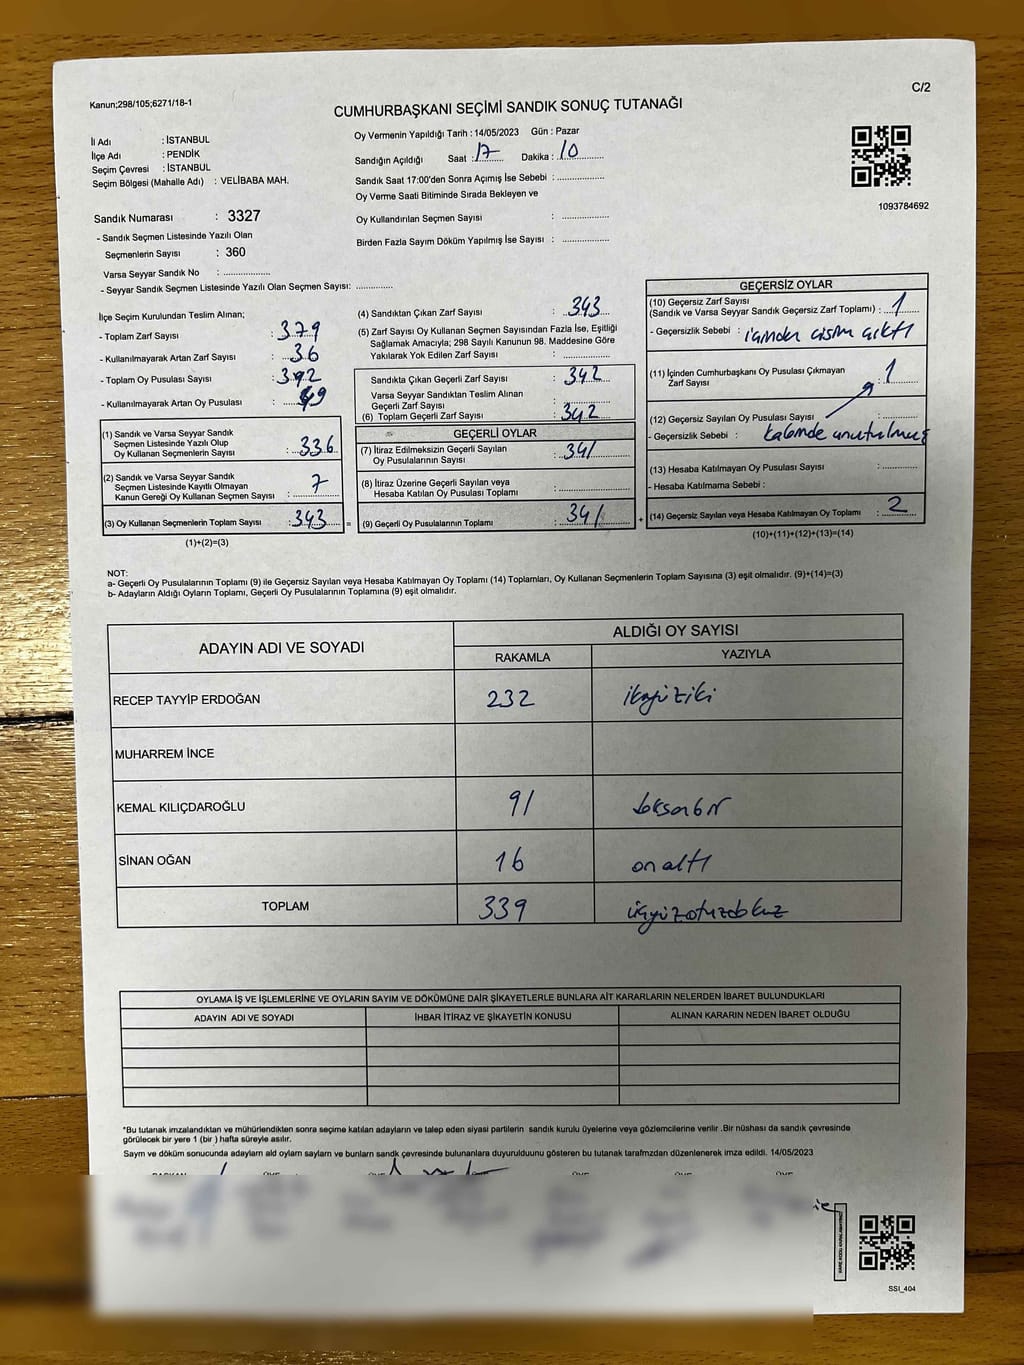 Kanun;298/105;6271/18-1
C/2
CUMHURBAŞKANI SEÇİMİ SANDIK SONUÇ TUTANAĞI
İl Adı : İSTANBUL
İlçe Adı : PENDİK
Seçim Çevresi : İSTANBUL
Seçim Bölgesi (Mahalle Adı) : VELİBABA MAH.
Sandık Numarası : 3327
- Sandık Seçmen Listesinde Yazılı Olan
Seçmenlerin Sayısı : 360
Varsa Seyyar Sandık No : ..................
- Seyyar Sandık Seçmen Listesinde Yazılı Olan Seçmen Sayısı: ..............
Oy Vermenin Yapıldığı Tarih : 14/05/2023 Gün : Pazar
Sandığın Açıldığı Saat : 17 Dakika : 10
Sandık Saat 17:00'den Sonra Açımış İse Sebebi : ..................
Oy Verme Saati Bitiminde Sırada Bekleyen ve
Oy Kullandırılan Seçmen Sayısı : ..................
Birden Fazla Sayım Döküm Yapılmış İse Sayısı : ..................
1093784692
İlçe Seçim Kurulundan Teslim Alınan;
- Toplam Zarf Sayısı : 379
- Kullanılmayarak Artan Zarf Sayısı : 36
- Toplam Oy Pusulası Sayısı : 392
- Kullanılmayarak Artan Oy Pusulası : 49
(1) Sandık ve Varsa Seyyar Sandık
Seçmen Listesinde Yazılı Olup
Oy Kullanan Seçmenlerin Sayısı : 336
(2) Sandık ve Varsa Seyyar Sandık
Seçmen Listesinde Kayıtlı Olmayan
Kanun Gereği Oy Kullanan Seçmen Sayısı : 7
(3) Oy Kullanan Seçmenlerin Toplam Sayısı : 343 =
(1)+(2)=(3)
(4) Sandıktan Çıkan Zarf Sayısı : 343
(5) Zarf Sayısı Oy Kullanan Seçmen Sayısından Fazla İse, Eşitliği
Sağlamak Amacıyla; 298 Sayılı Kanunun 98. Maddesine Göre
Yakılarak Yok Edilen Zarf Sayısı : ..................
Sandıkta Çıkan Geçerli Zarf Sayısı : 342
Varsa Seyyar Sandıktan Teslim Alınan
Geçerli Zarf Sayısı : ..................
(6) Toplam Geçerli Zarf Sayısı : 342
GEÇERLİ OYLAR
(7) İtiraz Edilmeksizin Geçerli Sayılan
Oy Pusulalarının Sayısı : 341
(8) İtiraz Üzerine Geçerli Sayılan veya
Hesaba Katılan Oy Pusulası Toplamı : ..................
(9) Geçerli Oy Pusulalarının Toplamı : 341 +
GEÇERSİZ OYLAR
(10) Geçersiz Zarf Sayısı
(Sandık ve Varsa Seyyar Sandık Geçersiz Zarf Toplamı) : 1
- Geçersizlik Sebebi : içinden cisim çıktı
(11) İçinden Cumhurbaşkanı Oy Pusulası Çıkmayan
Zarf Sayısı : 1
(12) Geçersiz Sayılan Oy Pusulası Sayısı : ..........
- Geçersizlik Sebebi : kabinde unutulmuş
(13) Hesaba Katılmayan Oy Pusulası Sayısı : ..........
- Hesaba Katılmama Sebebi :
(14) Geçersiz Sayılan veya Hesaba Katılmayan Oy Toplamı : 2
(10)+(11)+(12)+(13)=(14)
NOT:
a- Geçerli Oy Pusulalarının Toplamı (9) ile Geçersiz Sayılan veya Hesaba Katılmayan Oy Toplamı (14) Toplamları, Oy Kullanan Seçmenlerin Toplam Sayısına (3) eşit olmalıdır. (9)+(14)=(3)
b- Adayların Aldığı Oyların Toplamı, Geçerli Oy Pusulalarının Toplamına (9) eşit olmalıdır.
ADAYIN ADI VE SOYADI
ALDIĞI OY SAYISI
RAKAMLA YAZIYLA
RECEP TAYYİP ERDOĞAN 232 ikiyüziki
MUHARREM İNCE
KEMAL KILIÇDAROĞLU 91 doksanbir
SİNAN OĞAN 16 on altı
TOPLAM 339 üçyüzotuzdokuz
OYLAMA İŞ VE İŞLEMLERİNE VE OYLARIN SAYIM VE DÖKÜMÜNE DAİR ŞİKAYETLERLE BUNLARA AİT KARARLARIN NELERDEN İBARET BULUNDUKLARI
ADAYIN ADI VE SOYADI İHBAR İTİRAZ VE ŞİKAYETİN KONUSU ALINAN KARARIN NEDEN İBARET OLDUĞU
*Bu tutanak imzalandıktan ve mühürlendikten sonra seçime katılan adayların ve talep eden siyasi partilerin sandık kurulu üyelerine veya gözlemcilerine verilir .Bir nüshası da sandık çevresinde
görülecek bir yere 1 (bir ) hafta süreyle asılır.
Sayım ve döküm sonucunda adayların aldı oyların sayıların ve bunların sandık çevresinde bulunanlara duyurulduunu gösteren bu tutanak tarafımzdan düzenlenerek imza edildi. 14/05/2023
SSI_404